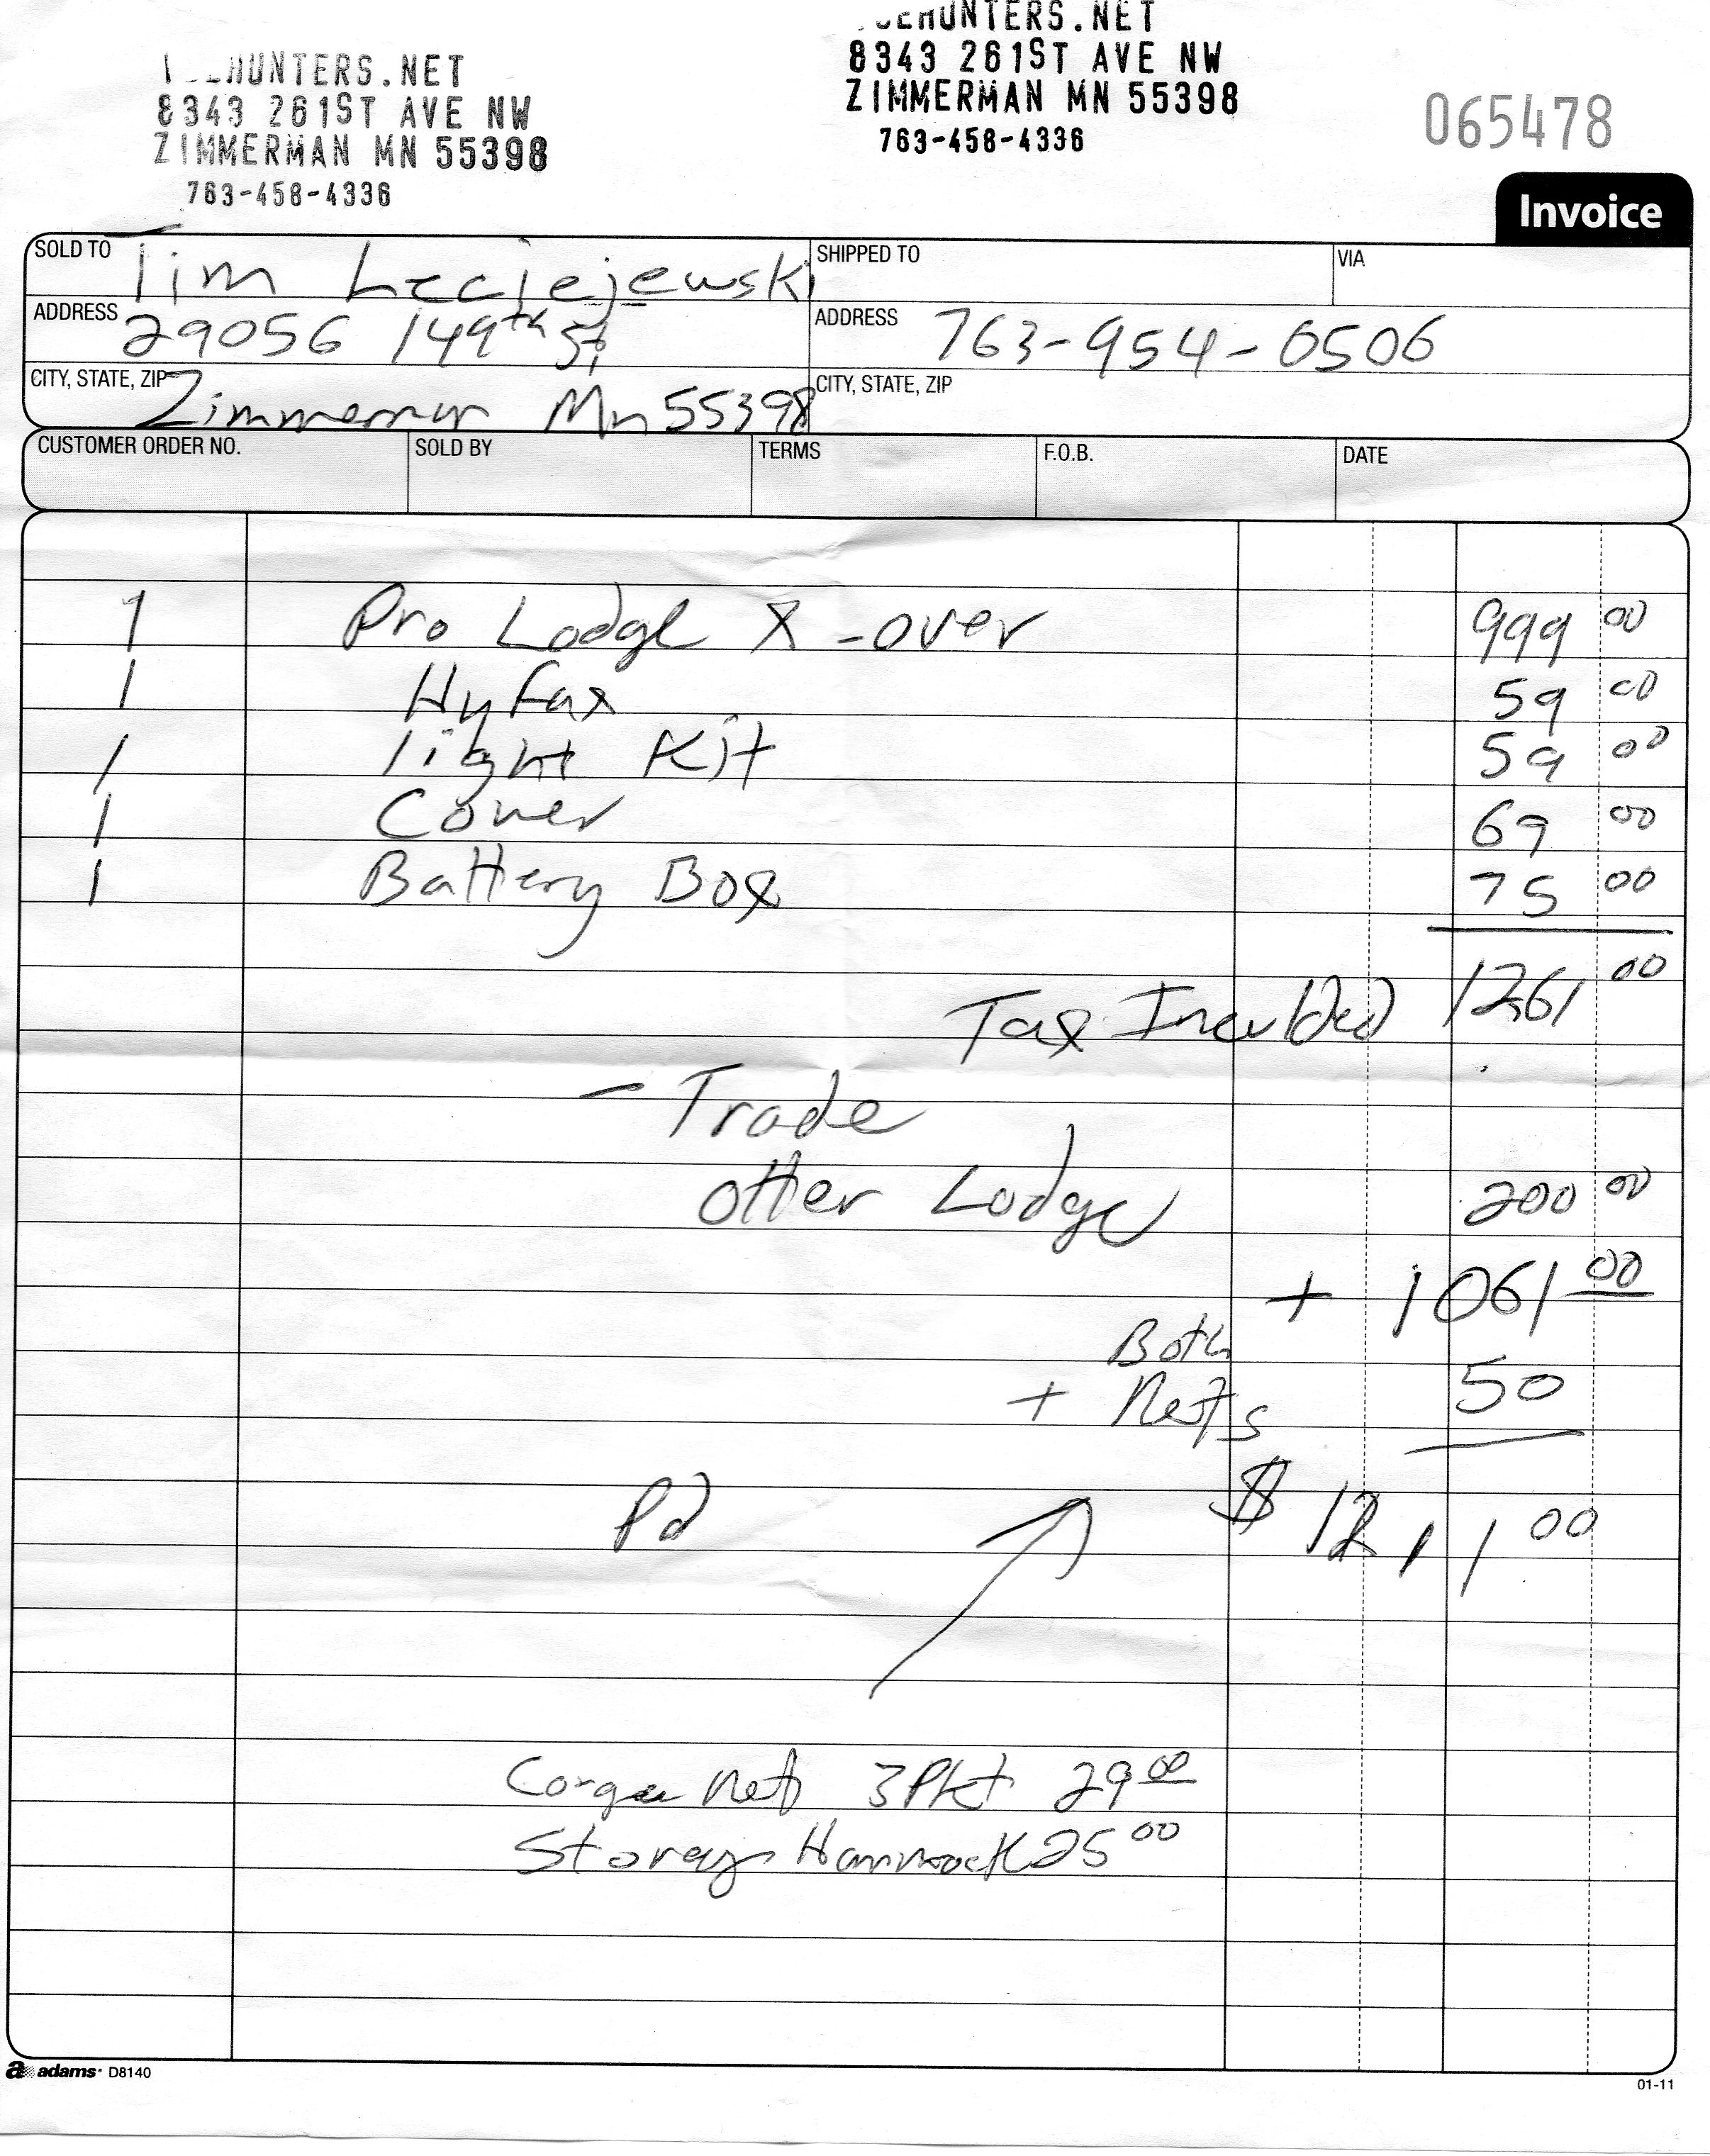 HUNTERS.NET
8343 261ST AVE NW
ZIMMERMAN MN 55398
763-458-4336
HUNTERS.NET
8343 261ST AVE NW
ZIMMERMAN MN 55398
763-458-4336
065478
Invoice
SOLD TO Tim Leciejewski
SHIPPED TO
VIA
ADDRESS 29056 149th St
ADDRESS 763-954-0506
CITY, STATE, ZIP Zimmerman Mn 55398
CITY, STATE, ZIP
CUSTOMER ORDER NO. SOLD BY TERMS F.O.B. DATE
1 Pro Lodge X-over 999 00
1 Hyfax 59 00
1 light Kit 59 00
1 Cover 69 00
1 Battery Box 75 00
Tax Inculded 1261 00
- Trade
Otter Lodge 200 00
+ 1061 00
Both
+ Nets 50
Pd $ 1211 00
net 3 Pkt 29 00
Hammock 25 00
adams D8140
01-11